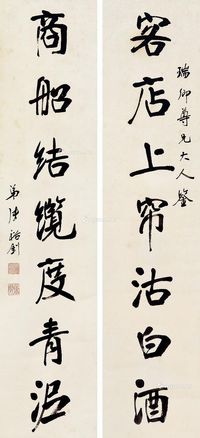 瑞卿尊兄大人鉴
客店上帘沽白酒
商船结缆度青
弟陆